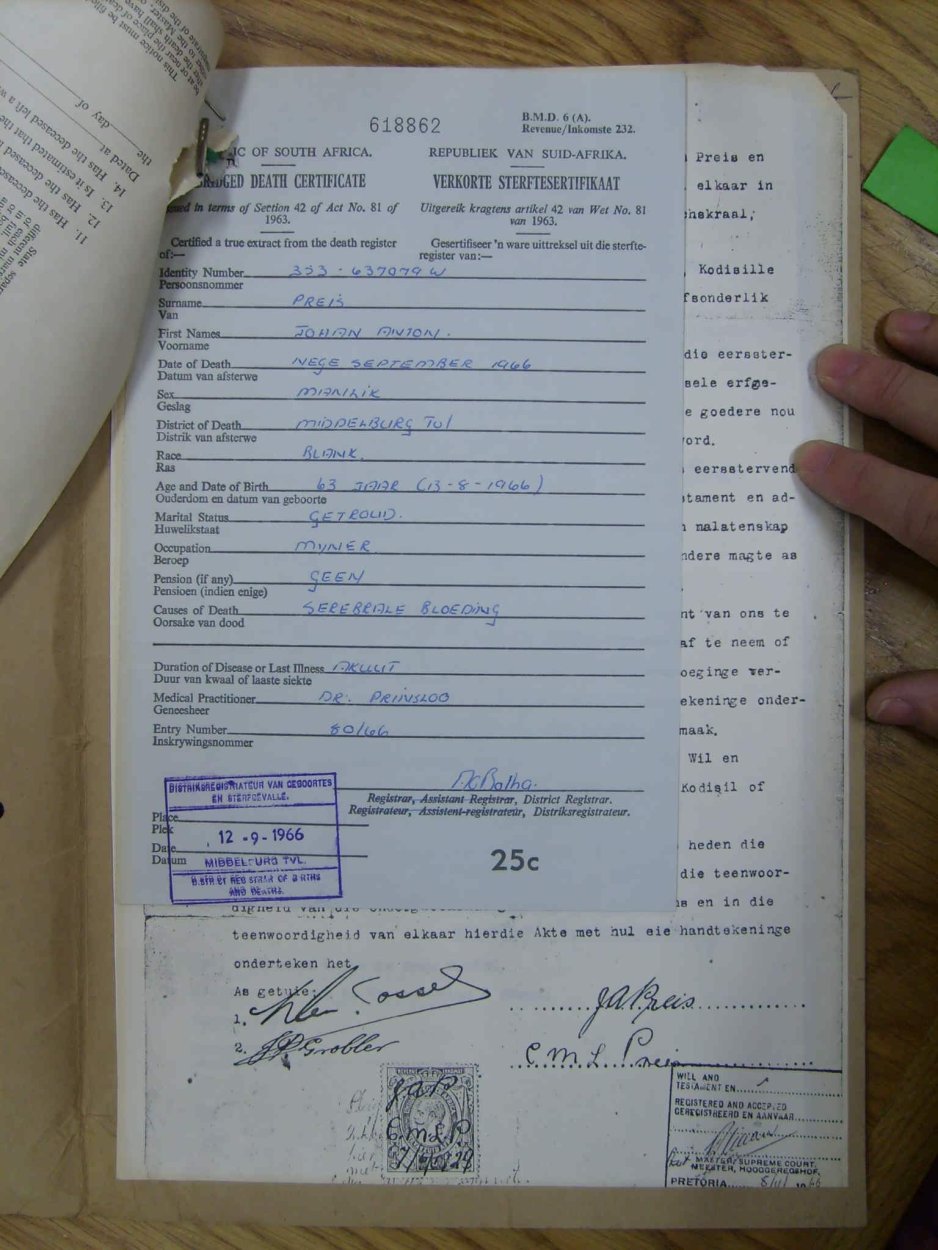 This notice must be
day of
Dated at
the
14. Has the deceased left a w
13. Is it estimated that the
12. Has the deceased
11. Has the deceased
State separa
618862
B.M.D. 6 (A).
Revenue/Inkomste 232.
IC OF SOUTH AFRICA.
REPUBLIEK VAN SUID-AFRIKA.
RIDGED DEATH CERTIFICATE
VERKORTE STERFTESERTIFIKAAT
sued in terms of Section 42 of Act No. 81 of
1963.
Uitgereik kragtens artikel 42 van Wet No. 81
van 1963.
Certified a true extract from the death register
of:—
Gesertifiseer 'n ware uittreksel uit die sterfte-
register van:—
Identity Number 353-637079 W
Persoonsnommer
Surname PREIS
Van
First Names JOHAN ANTON.
Voorname
Date of Death NEGE SEPTEMBER 1966
Datum van afsterwe
Sex MANLIK
Geslag
District of Death MIDDELBURG Tvl
Distrik van afsterwe
Race BLANK.
Ras
Age and Date of Birth 63 JAAR (13-8-1966)
Ouderdom en datum van geboorte
Marital Status GETROUD.
Huwelikstaat
Occupation MYNER
Beroep
Pension (if any) GEEN
Pensioen (indien enige)
Causes of Death SEREBRALE BLOEDING
Oorsake van dood
Duration of Disease or Last Illness AKUUT
Duur van kwaal of laaste siekte
Medical Practitioner DR. PRINSLOO
Geneesheer
Entry Number 80/66
Inskrywingsnommer
Botha.
Registrar, Assistant Registrar, District Registrar.
Registrateur, Assistent-registrateur, Distriksregistrateur.
Place
Plek
Date
Datum
DISTRIKSREGISTRATEUR VAN GEBOORTES
EN STERFGEVALLE.
12-9-1966
MIDDELBURG TVL.
DISTRICT REGISTRAR OF BIRTHS
AND DEATHS.
25c
Preis en
elkaar in
hskraal,
Kodisille
fsonderlik
die eerster-
sele erfge-
e goedere nou
ord.
eerstervend
stament en ad-
nalatenskap
ndere magte as
nt van ons te
af te neem of
oeginge ver-
ekeninge onder-
maak.
Wil en
Kodisil of
heden die
die teenwoor-
digheid van die
s en in die
teenwoordigheid van elkaar hierdie Akte met hul eie handtekeninge
onderteken het.
As getuie:
1.
J.A. Preis
2. Grobler
C.M.L. Preis
J.A.P.
C.M.L.P.
WILL AND
TESTAMENT EN
REGISTERED AND ACCEPTED
GEREGISTREERD EN AANVAAR
MASTER SUPREME COURT.
MEESTER, HOOGGEREGSHOF,
PRETORIA